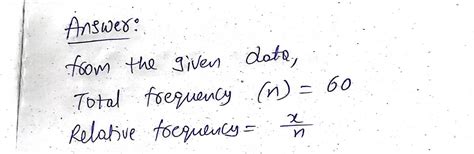 Answer:
from the given data,
Total frequency (n) = 60
Relative frequency = x/n